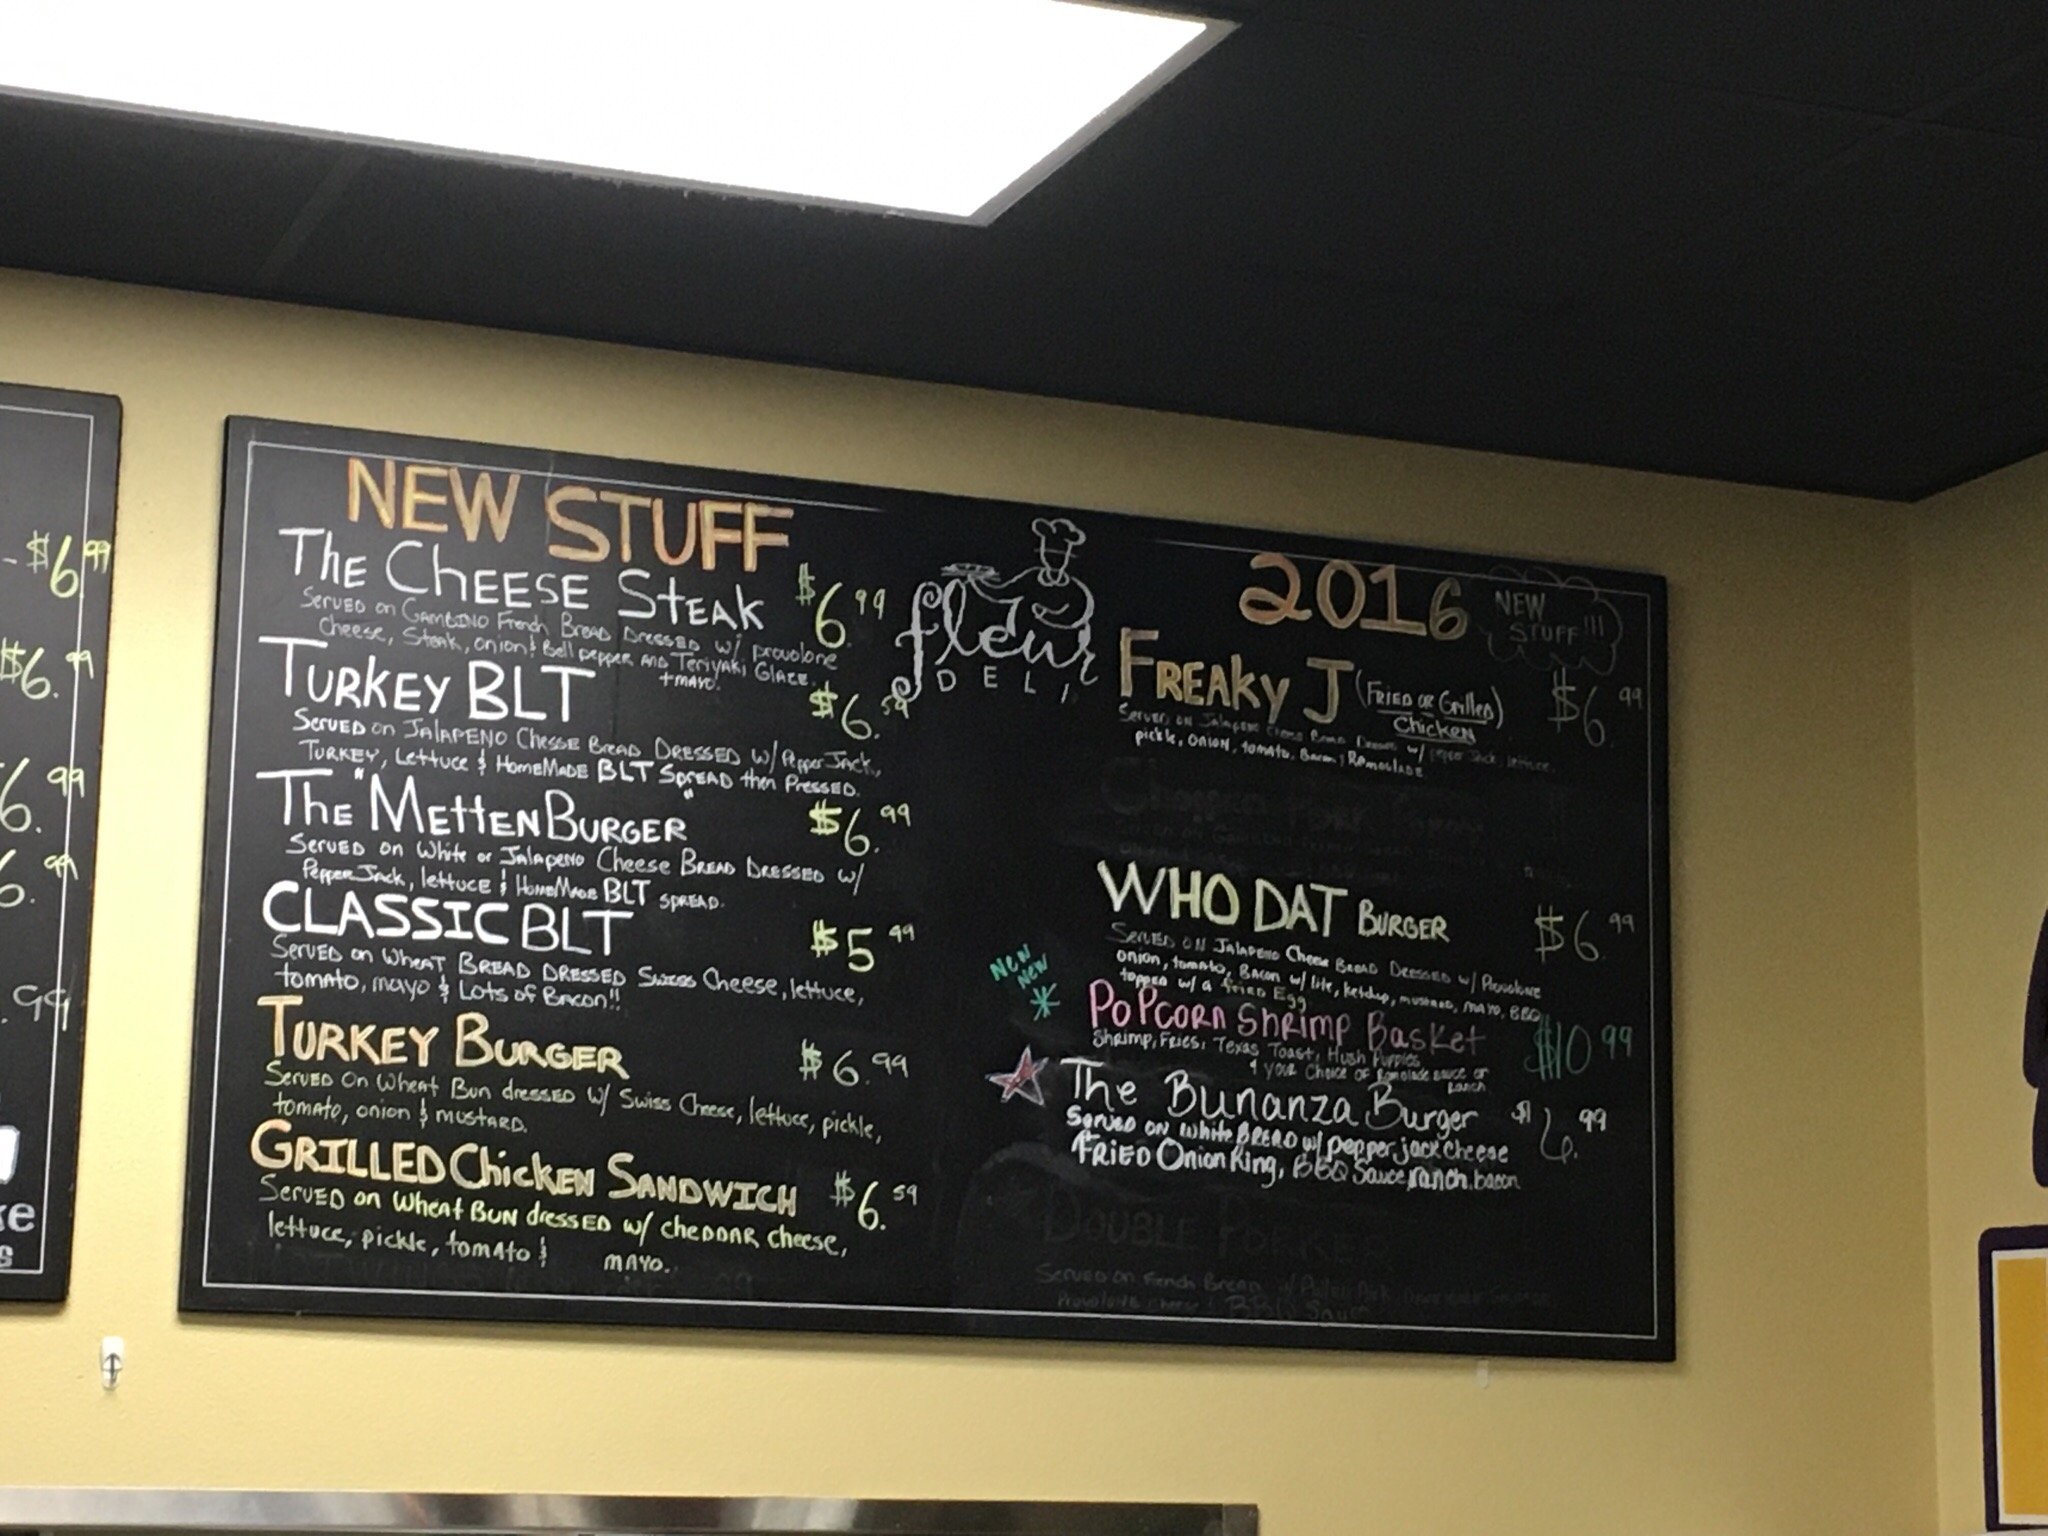 - $6.99
$6.99
6.99
6.99
.99
ke
s
NEW STUFF
The CHEESE STEAK $6.99
SERVED on GAMBINO French BREAD DRESSED w/ provolone
cheese, Steak, onion & Bell pepper AND Teriyaki GLAZE.
+MAYO.
TURKEY BLT $6.59
SERVED on JALAPENO CHESSE BREAD DRESSED w/ PEPPER JACK,
TURKEY, Lettuce & HOMEMADE BLT SPREAD then PRESSED.
The "METTEN BURGER" $6.99
SERVED on White or Jalapeno Cheese BREAD DRESSED w/
Pepper Jack, lettuce & HomeMade BLT SPREAD.
CLASSIC BLT $5.99
SERVED on Wheat BREAD DRESSED Swiss Cheese, lettuce,
tomato, mayo & Lots of Bacon!!
TURKEY BURGER $6.99
SERVED On Wheat Bun dressed w/ Swiss Cheese, lettuce, pickle,
tomato, onion & mustard.
GRILLED Chicken SANDWICH $6.59
SERVED on Wheat BUN dressed w/ cheddar cheese,
lettuce, pickle, tomato & mayo.
fleur
DELI
2016
NEW
STUFF!!!
FREAKY J (FRIED or Grilled) $6.99
Chicken
Served on Jalapeno Cheese Bread Dressed w/ pepper jack, lettuce,
pickle, onion, tomato, Bacon, Remoulade
WHO DAT BURGER $6.99
SERVED ON Jalapeno Cheese BREAD DRESSED w/ Provolone
onion, tomato, BACON w/ lite, ketchup, mustard, mayo, BBQ
topped w/ a fried Egg
NEW
NEW
POPCORN Shrimp Basket $10.99
Shrimp, Fries, Texas Toast, Hush Puppies
& your Choice of Remolade sauce or
Ranch
The Bunanza Burger $6.99
Served on white BREAD w/ pepper jack cheese
FRIED Onion Ring, BBQ Sauce, ranch, bacon
DOUBLE
Served on French Bread w/
Provolone cheese & Sauce